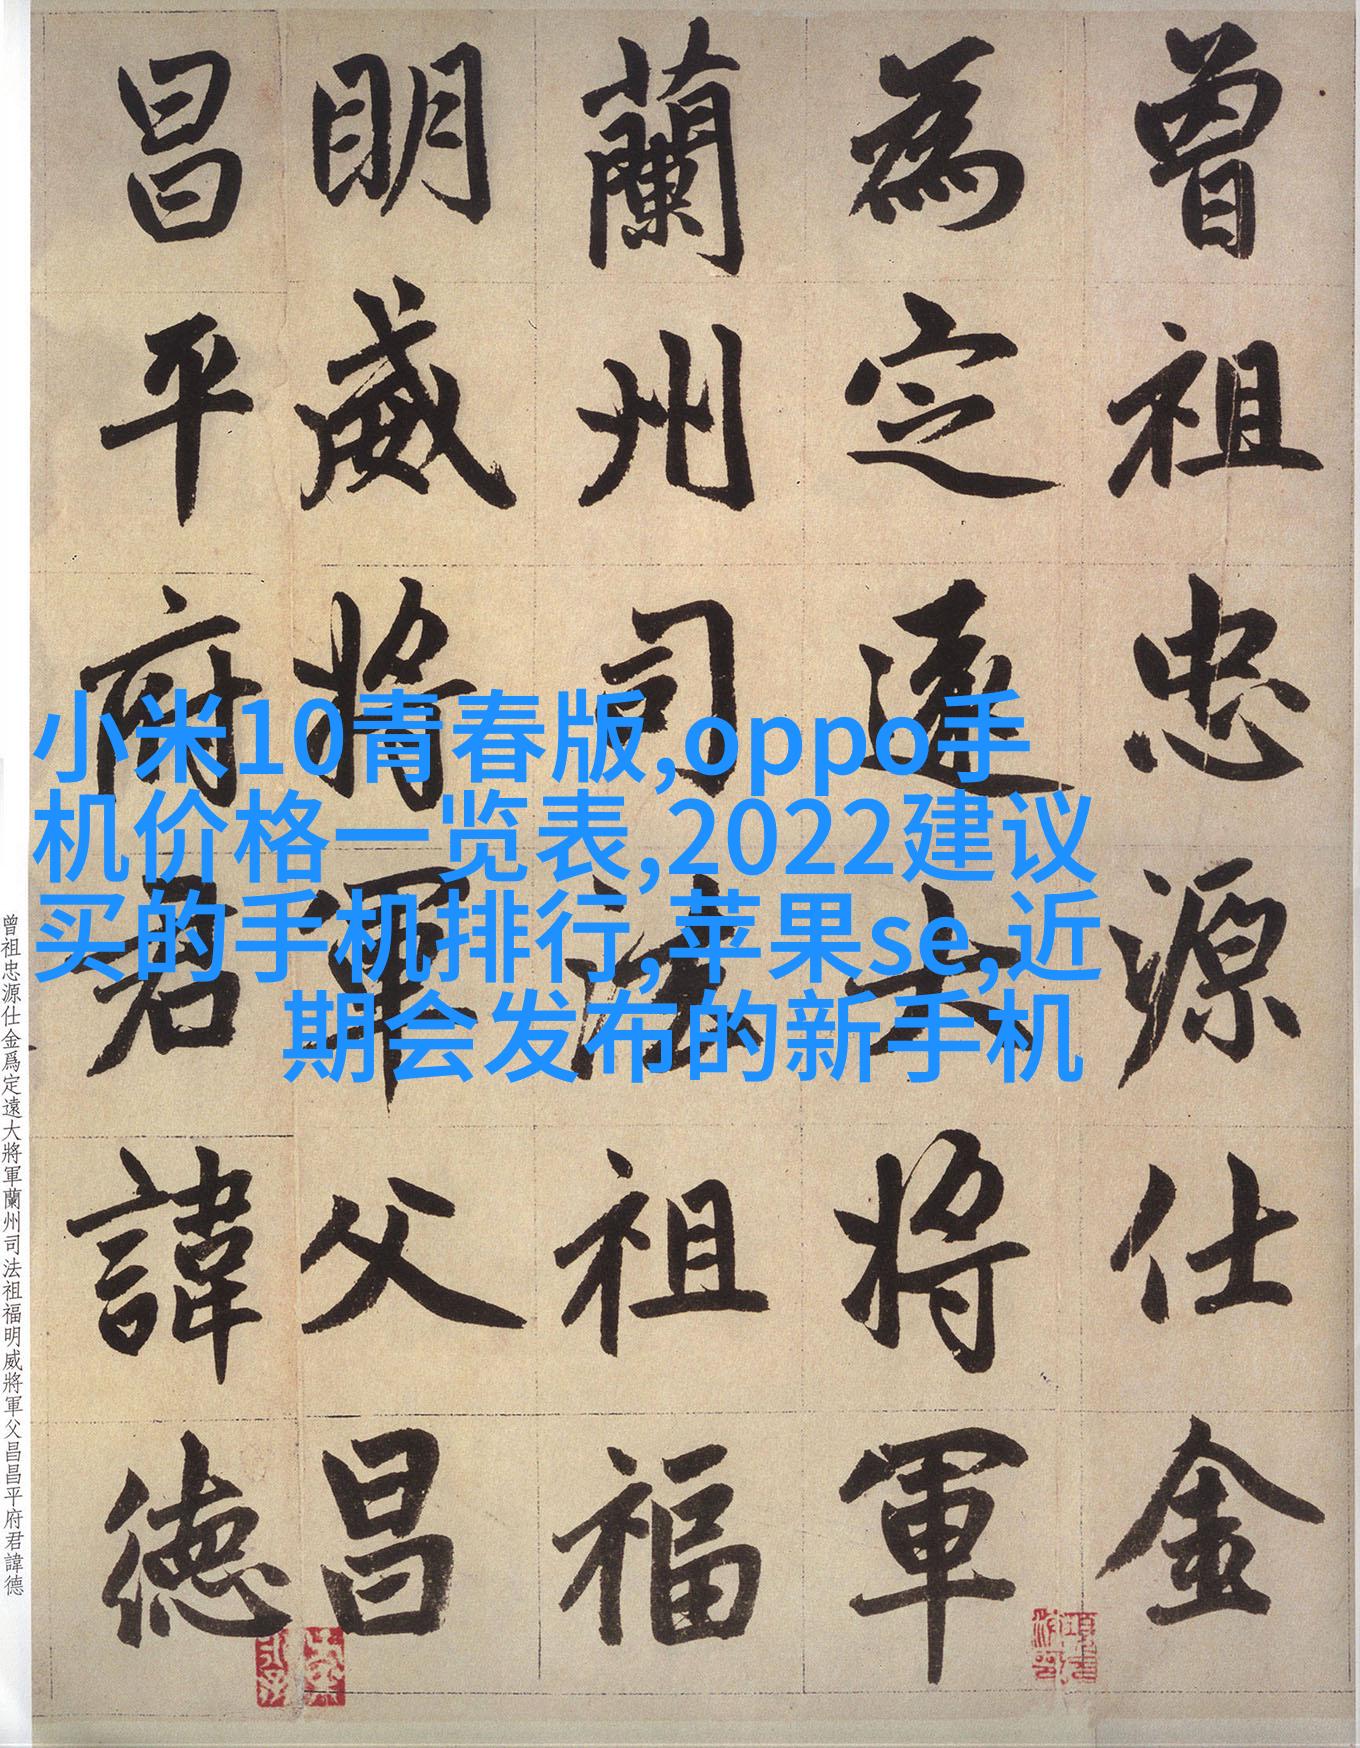 曾祖忠源仕金
為定遠大將軍
蘭州司法祖福
明威將軍父昌
昌平府君諱德
小米10青春版,oppo手
机价格一览表,2022建议
买的手机排行,苹果se,近
期会发布的新手机
曾祖忠源仕金爲定遠大將軍蘭州司法祖福明威將軍父昌昌平府君諱德